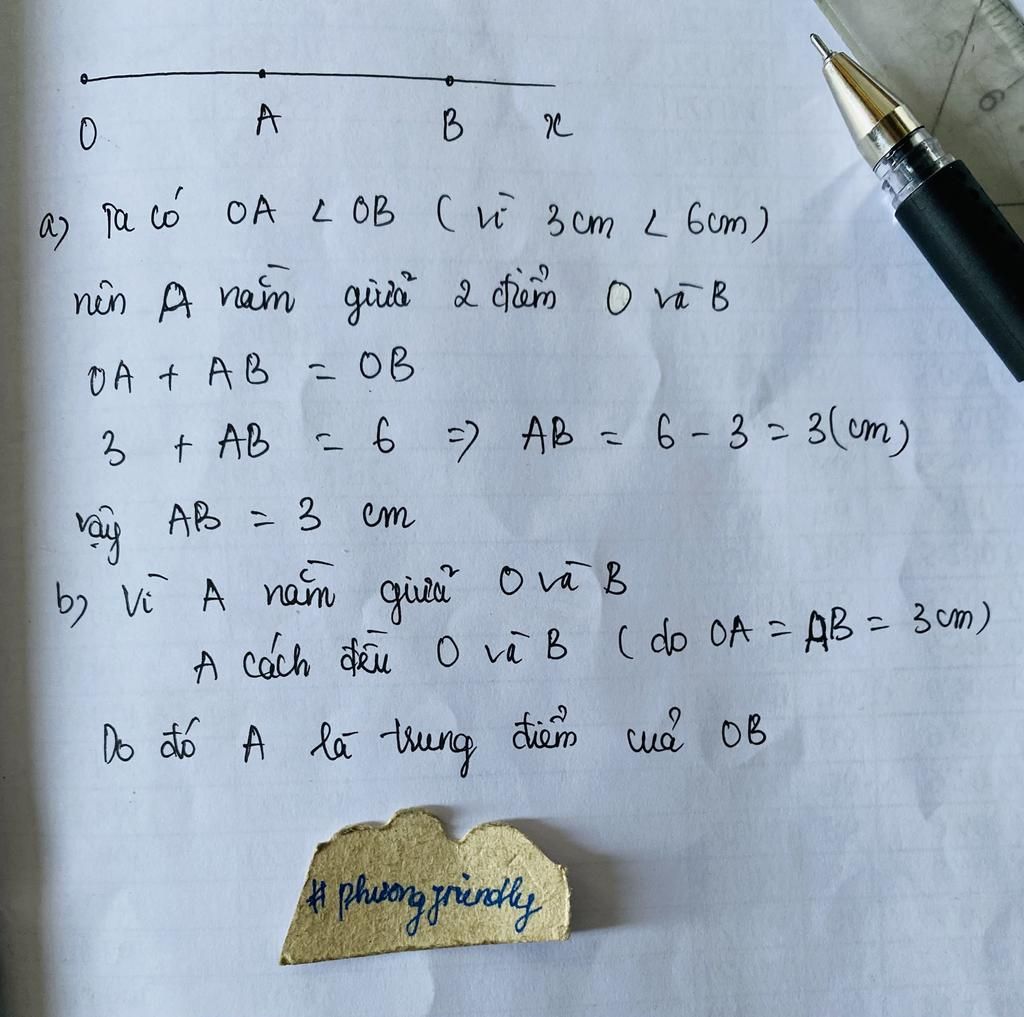 O A B x
a) Ta có OA < OB ( vì 3cm < 6cm)
nên A nằm giữa 2 điểm O và B
OA + AB = OB
3 + AB = 6 => AB = 6 - 3 = 3(cm)
vậy AB = 3 cm
b) Vì A nằm giữa O và B
A cách đều O và B ( do OA = AB = 3cm)
Do đó A là trung điểm của OB
# phuongfriendly
5
6